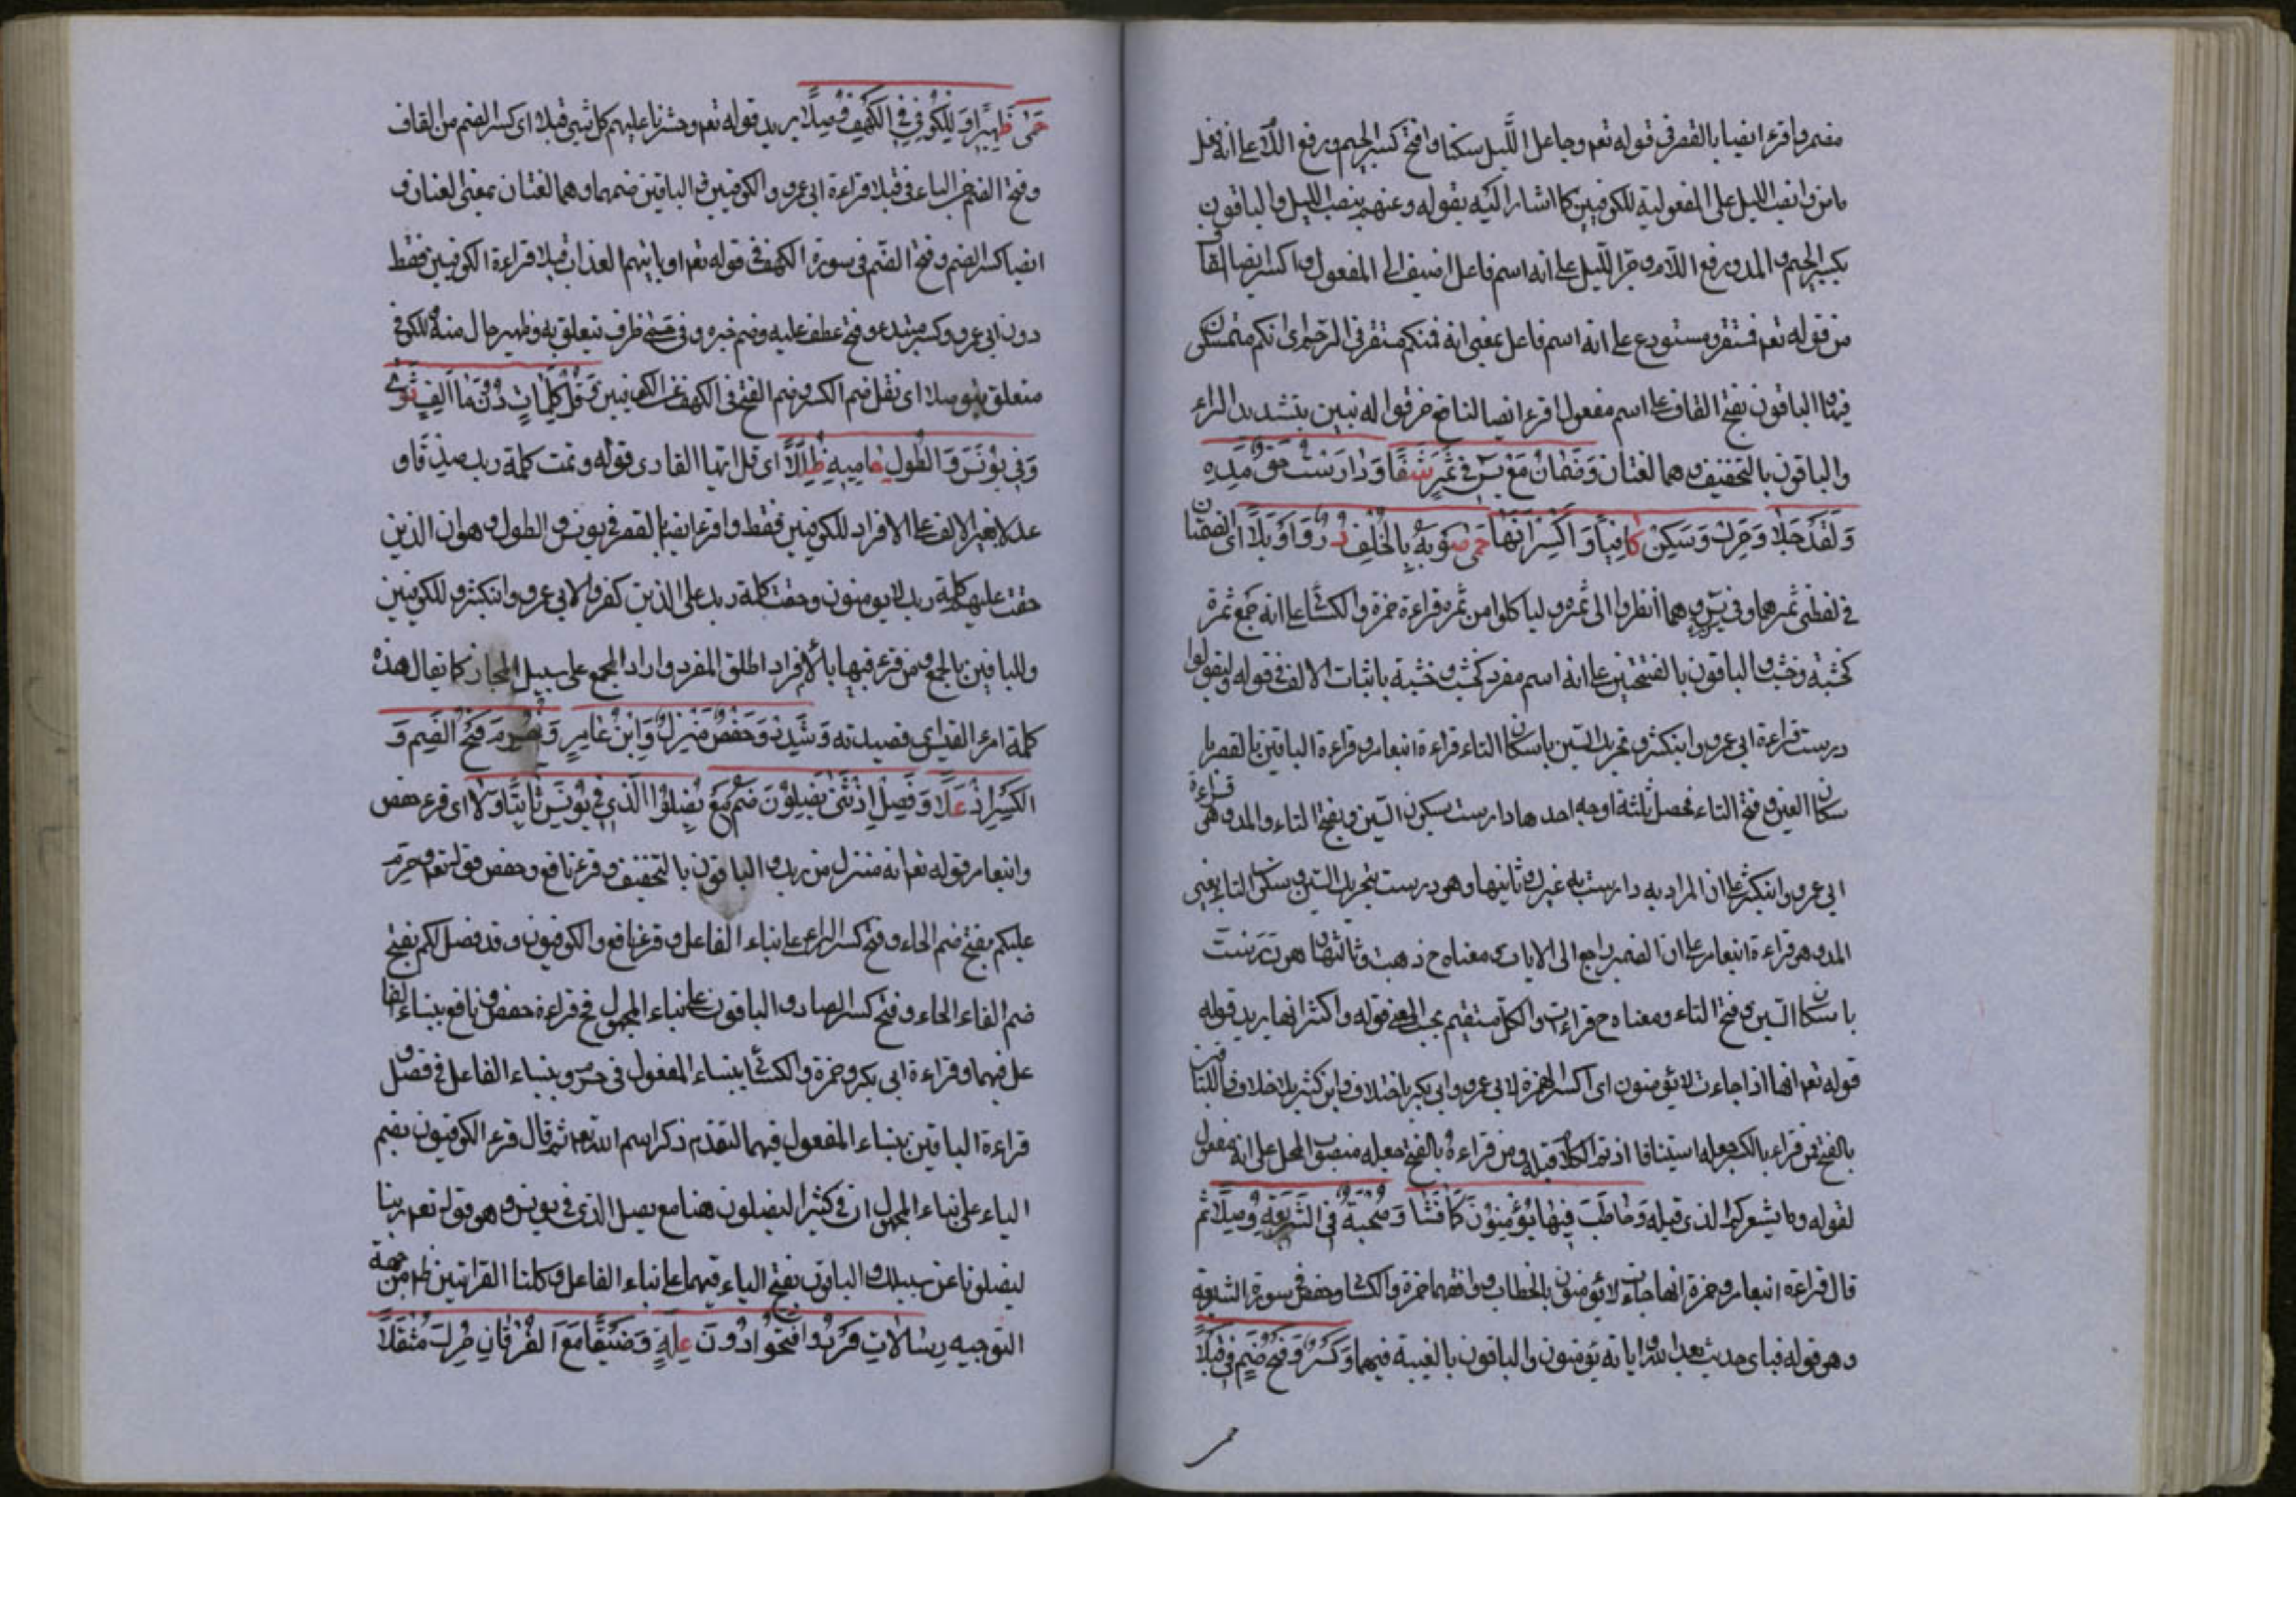 مضمر واقرء ايضا بالقصر فى قوله تعم وجاعل الليل سكنا وافتح كسر الجيم ورفع اللام على انه فعل
ماض وانصب الليل على المفعولية للكوفيين كما اشار اليه بقوله وعنهم بنصب الليل والباقون
بكسر الجيم والمد ورفع اللام وجر الليل على انه اسم فاعل اضيف الى المفعول واكسر ايضا القاف
من قوله تعم فمستقر ومستودع على انه اسم فاعل بمعنى انه فمنكم مستقر فى الرحم اى انكم متمسكون
فيها والباقون بفتح القاف على اسم مفعول اقرء ايضا لنافع خرقوا له نبين بتشديد الراء
والباقون بالتخفيف وهما لغتان وَضَمَّانِ مَعْ يٰسٓ فِى ثَمَرٍ شَفَا وَدَارَسْتَ حَقٌّ مَدُّهُ
وَلَقَدْ حَلَا وَحَرِّكْ وَسَكِّنْ كَافِيًا وَاكْسِرَ انَّهَا حِمَى صَوْبِهِ بِالْخُلْفِ دَرَّ وَاَوْبَلَا اى الضمتان
فى لفظى ثمر هما وفى يس وهما انظروا الى ثمره ولياكلوا من ثمره قراءة حمزة والكسائى على انه جمع ثمرة
كخشبة وخشب والباقون بالفتحتين على انه اسم مفرد كخشب وخشبة باثبات الالف فى قوله وليقولوا
درست قراءة ابى عمرو وابن كثير وتحريك السين باسكان التاء قراءة ابن عامر وقراءة الباقين بالقصر با
سكان السين وفتح التاء فحصل ثلثة اوجه احدها دارست بسكون السين وبفتح التاء والمد وهى قراءة
ابى عمرو وابن كثير على ان المراد به دارست به غيرك وثانيها وهو درست بتحريك السين وسكون التاء بغير
المد وهو قراءة ابن عامر على ان الضمير راجع الى الايات ومعناه ح ذهبت وثالثها هو درست
باسكان السين وفتح التاء ومعناه ح قراءت والكل مستقيم بحسب المعنى قوله واكسر انها يريد قوله
قوله تعم انها اذا جاءت لا يؤمنون اى اكسر الهمزة لابى عمرو وابى بكر باختلاف وابن كثير بلا خلاف وللباقين
بالفتح فمن قراء بالكسر جعله استينافا اذ تم الكلام قبله ومن قراءه بالفتح جعله منصوب المحل على انه مفعول
لقوله وما يشعركم الذى قبله وَخَاطَبَ فِيهَا يُؤْمِنُونَ كَمَا فَشَا وَصُحْبَةُ فِى الشَّرِيعَةِ وُصِّلَا ثم
قال قراءة ابن عامر وحمزة انها جاءت لا يؤمنون بالخطاب ووافقهما حمزة والكسائى وحفص فى سورة الشريعة
وهو قوله فباى حديث بعد الله واياته يؤمنون والباقون بالغيبة فيهما وَكَسْرٌ وَفَتْحٌ ضُمَّ فِى قِبَلًا
حمى
حَمَى ظَهِيرًا وَلِلْكُوفِىِّ فِى الْكَهْفِ وُصِّلَا يريد قوله تعم وحشرنا عليهم كل شيئ قبلا اى كسر الضم من القاف
وفتح الضم من الباء فى قبلا قراءة ابى عمرو والكوفيين والباقين ضمهما وهما لغتان بمعنى لعنان و
ايضا كسر الضم وفتح الضم فى سورة الكهف فى قوله تعم او ياتيهم العذاب قبلا قراءة الكوفيين فقط
دون ابى عمرو وكسر مبتدء وفتح عطف عليه وضم خبره وفى حمى ظرف تتعلق به وظهير حال منه وللكوفى
متعلق بوصلا اى نقل ضم الكسر وضم الفتح فى الكهف عن الكوفيين وَقُلْ كَلِمَاتٌ دُونَ مَا اَلِفٍ ثَوَى
وَفِى يُونُسٍ وَالطَّوْلِ حَامِيهِ ظَلَّلَا اى قل ايها القارى قوله وتمت كلمة ربك صدقا و
عدلا بغير الالف على الافراد للكوفيين فقط واقرء ايضا بالقصر فى يونس والطول وهو ان الذين
حقت عليهم كلمة ربك لا يومنون وحقت كلمة ربك على الذين كفروا لابى عمرو وابن كثير وللكوفيين
وللباقين بالجمع ومن قرء فيها بالافراد اطلق المفرد واراد الجمع على سبيل المجاز كما يقال هذه
كلمة امرء القيس اى قصيدته وَشَدَّدَ حَفْصٌ مُنْزَلٌ وَابْنُ عَامِرٍ وَحُرِّمَ فَتْحُ الضَّمِّ وَ
الْكَسْرِ اِذْ عَلَا وَفُصِّلَ اِذْ ثَنَّى يَضِلُّونَ ضُمَّ مَعْ يَضِلُّوا الَّذِى فِى يُونُسٍ ثَابِتًا وَلَا اى قرء حفص
وابن عامر قوله تعم انه منزل من ربك والباقون بالتخفيف وقرء نافع وحفص قوله تعم وحرم
عليكم بفتح ضم الحاء وفتح كسر الراء على بناء الفاعل وقرء نافع والكوفيون وقد فصل لكم بفتح
ضم الفاء الحاء وفتح كسر الصاد والباقون على بناء المجهول فح قراءة حفص ونافع ببناء الفا
عل فيهما وقراءة ابى بكر وحمزة والكسائى ببناء المفعول فى حرم وببناء الفاعل فى فصل و
قراءة الباقين ببناء المفعول فيهما لتقدم ذكر اسم الله تعم ثم قال قرء الكوفيون بضم
الياء على بناء المجهول ان كثيرا ليضلون هنا مع يصل الذى فى يونس وهو قوله تعم ربنا
ليضلونا عن سبيلك والباقون بفتح الياء فيهما على بناء الفاعل وكلتا القرائتين ظاهر من جهة
التوجيه رِسَالَاتِ فَرْدٌ وَافْتَحُوا دُونَ عِلَّةٍ وَضَيْقًا مَعَ الْفُرْقَانِ حَرِّكْ مُثَقِّلَا